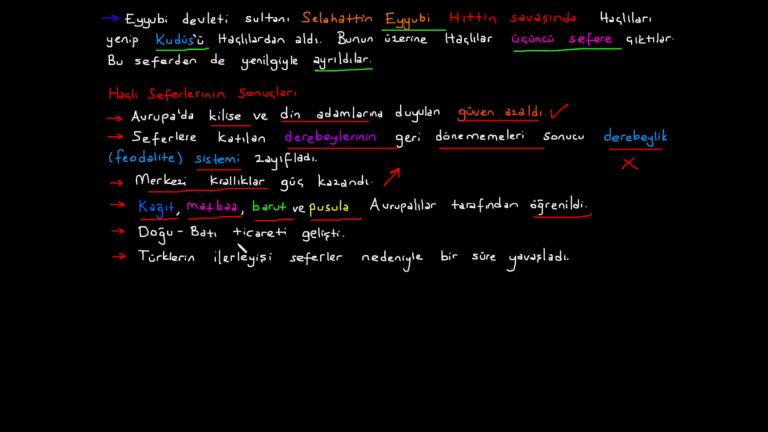 → Eyyubi devleti sultanı Selahattin Eyyubi Hıttin savaşında Haçlıları
yenip Kudüs'ü Haçlılardan aldı. Bunun üzerine Haçlılar üçüncü sefere çıktılar.
Bu seferden de yenilgiyle ayrıldılar.
Haçlı Seferlerinin Sonuçları
→ Avrupa'da kilise ve din adamlarına duyulan güven azaldı.
→ Seferlere katılan derebeylerinin geri dönememeleri sonucu derebeylik
(feodalite) sistemi zayıfladı.
→ Merkezi krallıklar güç kazandı.
→ Kağıt, matbaa, barut ve pusula Avrupalılar tarafından öğrenildi.
→ Doğu-Batı ticareti gelişti.
→ Türklerin ilerleyişi seferler nedeniyle bir süre yavaşladı.